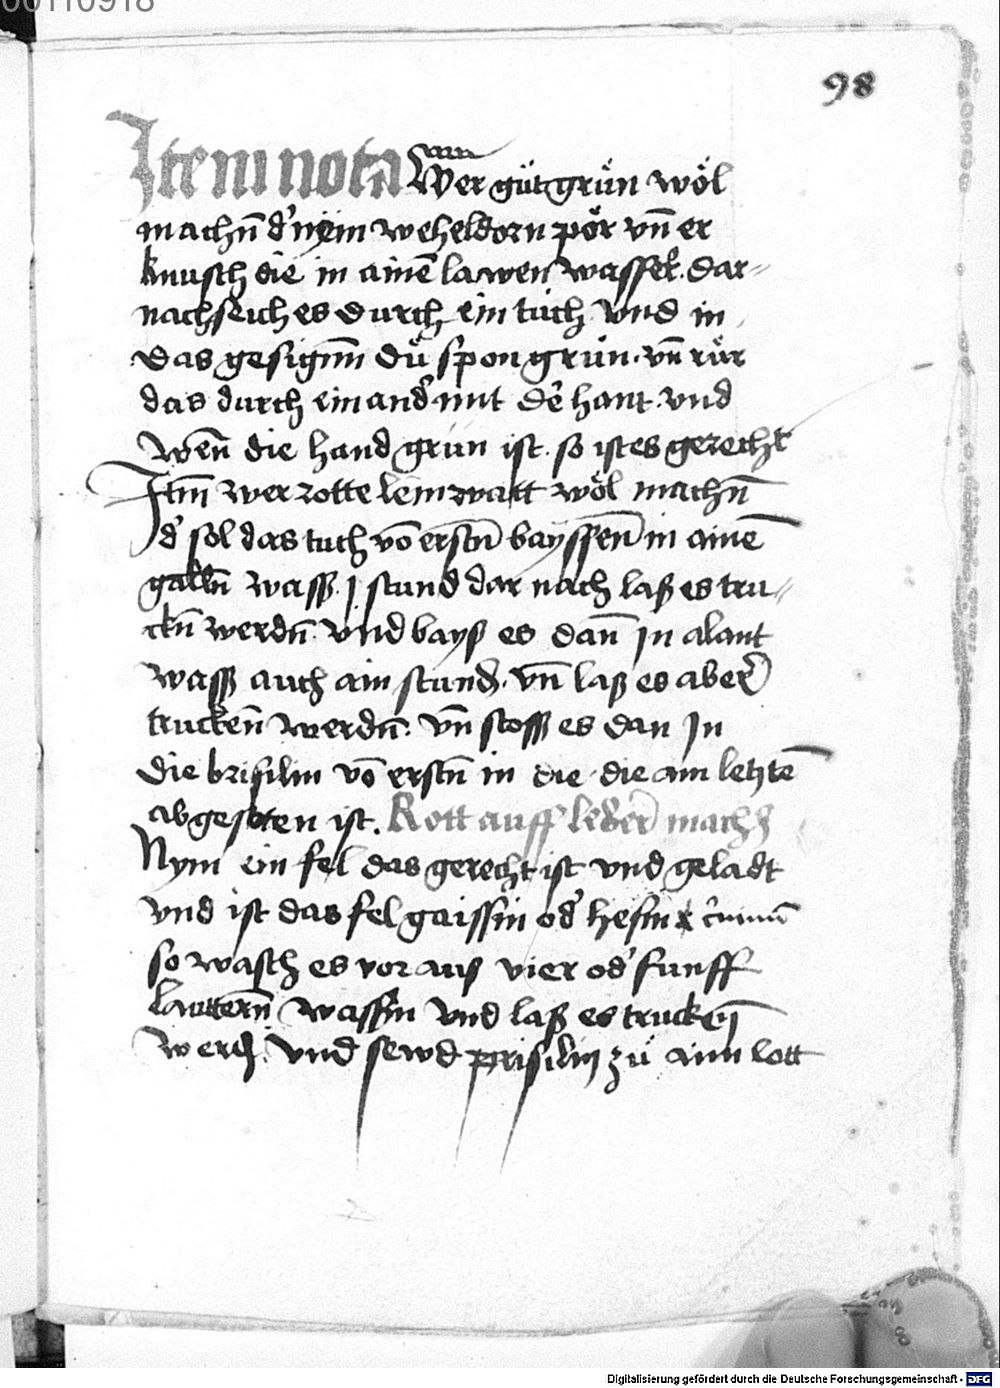 00110918
98
Item nota Wer gůt grůn wöl
machn̄ d' nẏm weheldorn pör vn̄ er
knusch die in ainē lawen wasser. dar=
nach seich es durch ein tůch vnd in
das gesignn dů spongrůn. vn̄ růr
das durch einand' mit dē hant. vnd
wen̄ die hand grün ist. so ist es gerecht
Itm̄ wer rotte leinwatt wöl machn̄
d' sol das tuch vō erstn̄ bayssen̄ in ainē
galln̄ wass. j stund dar nach laß es tru=
ckn̄ werdn̄. vnd bayß es dan̄ In alant
wass auch ain stund. vn̄ laß es aber
trucken̄ werdn̄: vn̄ stoss es dan In
die brisilin vō erstn̄ in die die am letztē
abgesoten ist. Rott auff leder mach
Nym ein fel das gerecht ist vnd geladt
vnd ist das fel gaissin od' hesin
so wasch es vor auß vier od' funff
lauttern̄ wassin vnd laß es trucken̄
werd. Vnd sewd prisilin zů aim lott
Digitalisierung gefördert durch die Deutsche Forschungsgemeinschaft - DFG